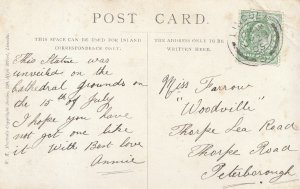 POST CARD.
THIS SPACE CAN BE USED FOR INLAND
CORRESPONDENCE ONLY.
THE ADDRESS ONLY TO BE
WRITTEN HERE.
This Statue was
unveiled on the
cathedral grounds on
the 15th of July
I hope you have
not got one like
it. With Best love
Annie
Miss Farrow
"Woodville"
Thorpe Lea Road
Thorpe Road
Peterborough